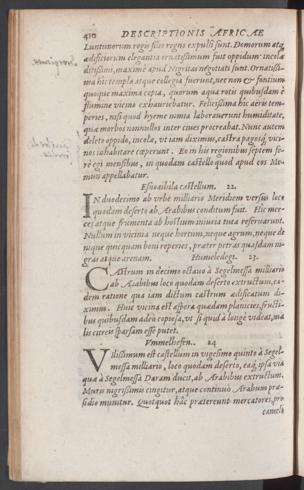 410 DESCRIPTIONIS AFRICAE
Luntunorum regis filio regno expulsi sunt. Domorum atq;
ædificiorum elegantia ornatissimum fuit oppidum: incolæ
ditissimi, maximè apud Nigritas negotiati sunt. Ornatissi-
ma hîc templa atque collegia fuerunt, nec non & fontium
quoque maxima copia, quorum aqua rotis quibusdam è
flumine vicino exhauriebatur. Felicissima hîc aëris tem-
peries, nisi quod hyeme nimia laborauerunt humiditate,
quæ morbos nonnullos inter ciues procreabat. Nunc autem
deleto oppido, incolæ, vt iam diximus, castra pagosq́; vici-
nos inhabitare cœperunt. Ego in his regionibus septem fe-
rè egi mensibus, in quodam castello quod apud eos Me-
muii appellabatur.
Essuoaihila castellum. 22.
IN duodecimo ab vrbe milliario Meridiem versus loco
quodam deserto ab Arabibus conditum fuit. Hîc mer-
ces atque frumenta ab hostium iniuria tuta reseruarunt.
Nullum in vicinia neque hortum, neque agrum, neque de-
neque quicquam boni reperies, præter petras quasdam ni-
gras atque arenam.
Humeledegi. 23.
CAstrum in decimo octauo à Segelmessa milliario
ab Arabibus loco quodam deserto extructum, ea-
dem ratione qua iam dictum castrum ædificatum di-
ximus. Huic vicina est aspera quædam planicies, fructi-
bus quibusdam adeò copiosa, vt si quid à longè videat, ma-
lis citreis sparsam esse putet.
Vmmelhesen. 24
VIlissimum est castellum in vigesimo quinto à Segel-
messa milliario, loco quodam deserto, eaq́; ipsa via
qua à Segelmessa Daram ducit, ab Arabibus extructum.
Muris nigerrimis cingitur, atque continuò Arabum præ-
sidio munitur. Quotquot hâc prætereunt mercatores, pro
cameli